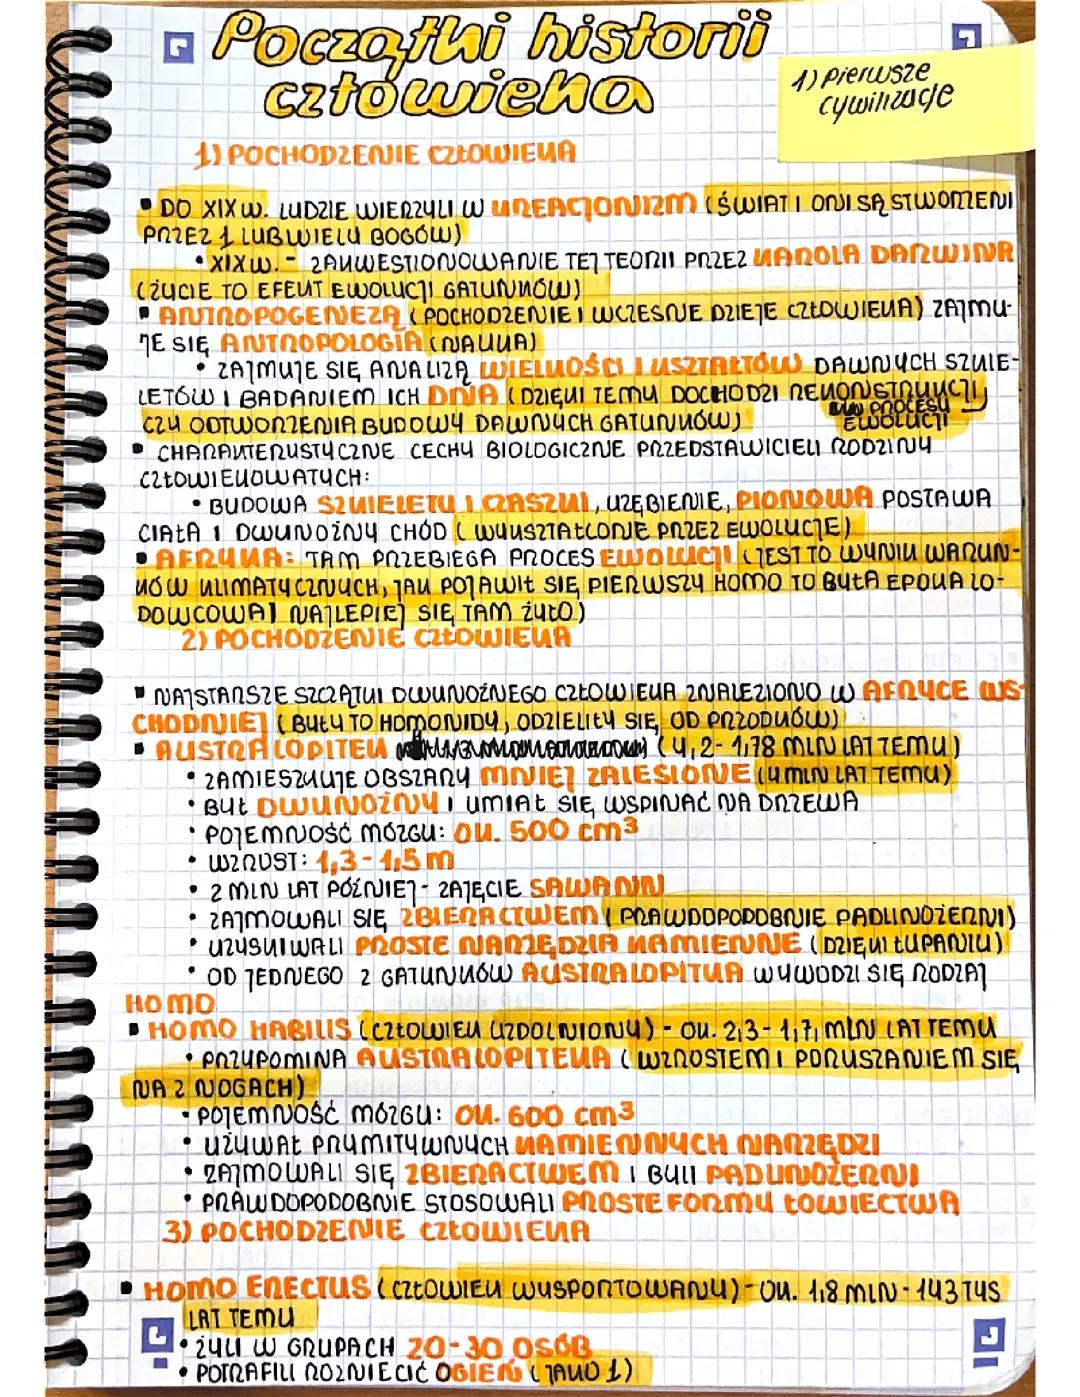 Początki historii
człowieka
1) Pierwsze
cywilizacje
1) POCHODZENIE CZŁOWIEKA
▪ DO XIX w. LUDZIE WIERZYLI W KREACJONIZM (ŚWIAT I ONI SĄ STWORZENI
PRZEZ 1 LUB WIELU BOGÓW)
• XIX w. - ZAKWESTIONOWANIE TEJ TEORII PRZEZ KAROLA DARWINA
(ŻYCIE TO EFEKT EWOLUCJI GATUNKÓW)
▪ ANTROPOGENEZĄ (POCHODZENIE I WCZESNE DZIEJE CZŁOWIEKA) ZAJMU-
JE SIĘ ANTROPOLOGIA (NAUKA)
• ZAJMUJE SIĘ ANALIZĄ WIELKOŚCI I KSZTAŁTÓW DAWNYCH SZKIE-
LETÓW I BADANIEM ICH DNA (DZIĘKI TEMU DOCHODZI REKONSTRUKCJI
CZY ODTWORZENIA BUDOWY DAWNYCH GATUNKÓW)
PROCESY
EWOLUCJI
▪ CHARAKTERYSTYCZNE CECHY BIOLOGICZNE PRZEDSTAWICIELI RODZINY
CZŁOWIEKOWATYCH:
• BUDOWA SZKIELETU I CZASZKI, UZĘBIENIE, PIONOWA POSTAWA
CIAŁA I DWUNOŻNY CHÓD (WYKSZTAŁCONE PRZEZ EWOLUCJE)
▪ AFRYKA: TAM PRZEBIEGA PROCES EWOLUCJI (JEST TO WYNIK WARUN-
KÓW KLIMATYCZNYCH, JAK POJAWIŁ SIĘ PIERWSZY HOMO TO BYŁA EPOKA LO-
DOWCOWA I NAJLEPIEJ SIĘ TAM ŻYŁO)
2) POCHODZENIE CZŁOWIEKA
▪ NAJSTARSZE SZCZĄTKI DWUNOŻNEGO CZŁOWIEKA ZNALEZIONO W AFRYCE WS-
CHODNIEJ (BYŁY TO HOMONIDY, ODZIELIŁY SIĘ OD PRZODKÓW)
▪ AUSTRALOPITEK (4,2- 1,78 MLN LAT TEMU)
• ZAMIESZKUJE OBSZARY MNIEJ ZALESIONE (4 MLN LAT TEMU)
• BYŁ DWUNOŻNY I UMIAŁ SIĘ WSPINAĆ NA DRZEWA
• POJEMNOŚĆ MÓZGU: OK. 500 cm³
• WZROST: 1,3-1,5 m
• 2 MLN LAT PÓŹNIEJ- ZAJĘCIE SAWANN
• ZAJMOWALI SIĘ ZBIERACTWEM (PRAWDOPODOBNIE PADLINOŻERNI)
• UZYSKIWALI PROSTE NARZĘDZIA KAMIENNE (DZIĘKI ŁUPANIU)
• OD JEDNEGO Z GATUNKÓW AUSTRALOPITKA WYWODZI SIĘ RODZAJ
HOMO
▪ HOMO HABILIS (CZŁOWIEK UZDOLNIONY) - OK. 2,3- 1,7, MLN LAT TEMU
• PRZYPOMINA AUSTRALOPITEKA (WZROSTEM I PORUSZANIEM SIĘ
NA 2 NOGACH)
• POJEMNOŚĆ MÓZGU: OK. 600 cm³
• UŻYWAŁ PRYMITYWNYCH KAMIENNYCH NARZĘDZI
• ZAJMOWALI SIĘ ZBIERACTWEM I BYLI PADLINOŻERNI
• PRAWDOPODOBNIE STOSOWALI PROSTE FORMY ŁOWIECTWA
3) POCHODZENIE CZŁOWIEKA
▪ HOMO ERECTUS (CZŁOWIEK WYSPORTOWANY) - OK. 1,8 MLN - 143 TYS
LAT TEMU
• ŻYLI W GRUPACH 20-30 OSÓB
• POTRAFILI ROZNIECIĆ OGIEŃ (JAKO 1)